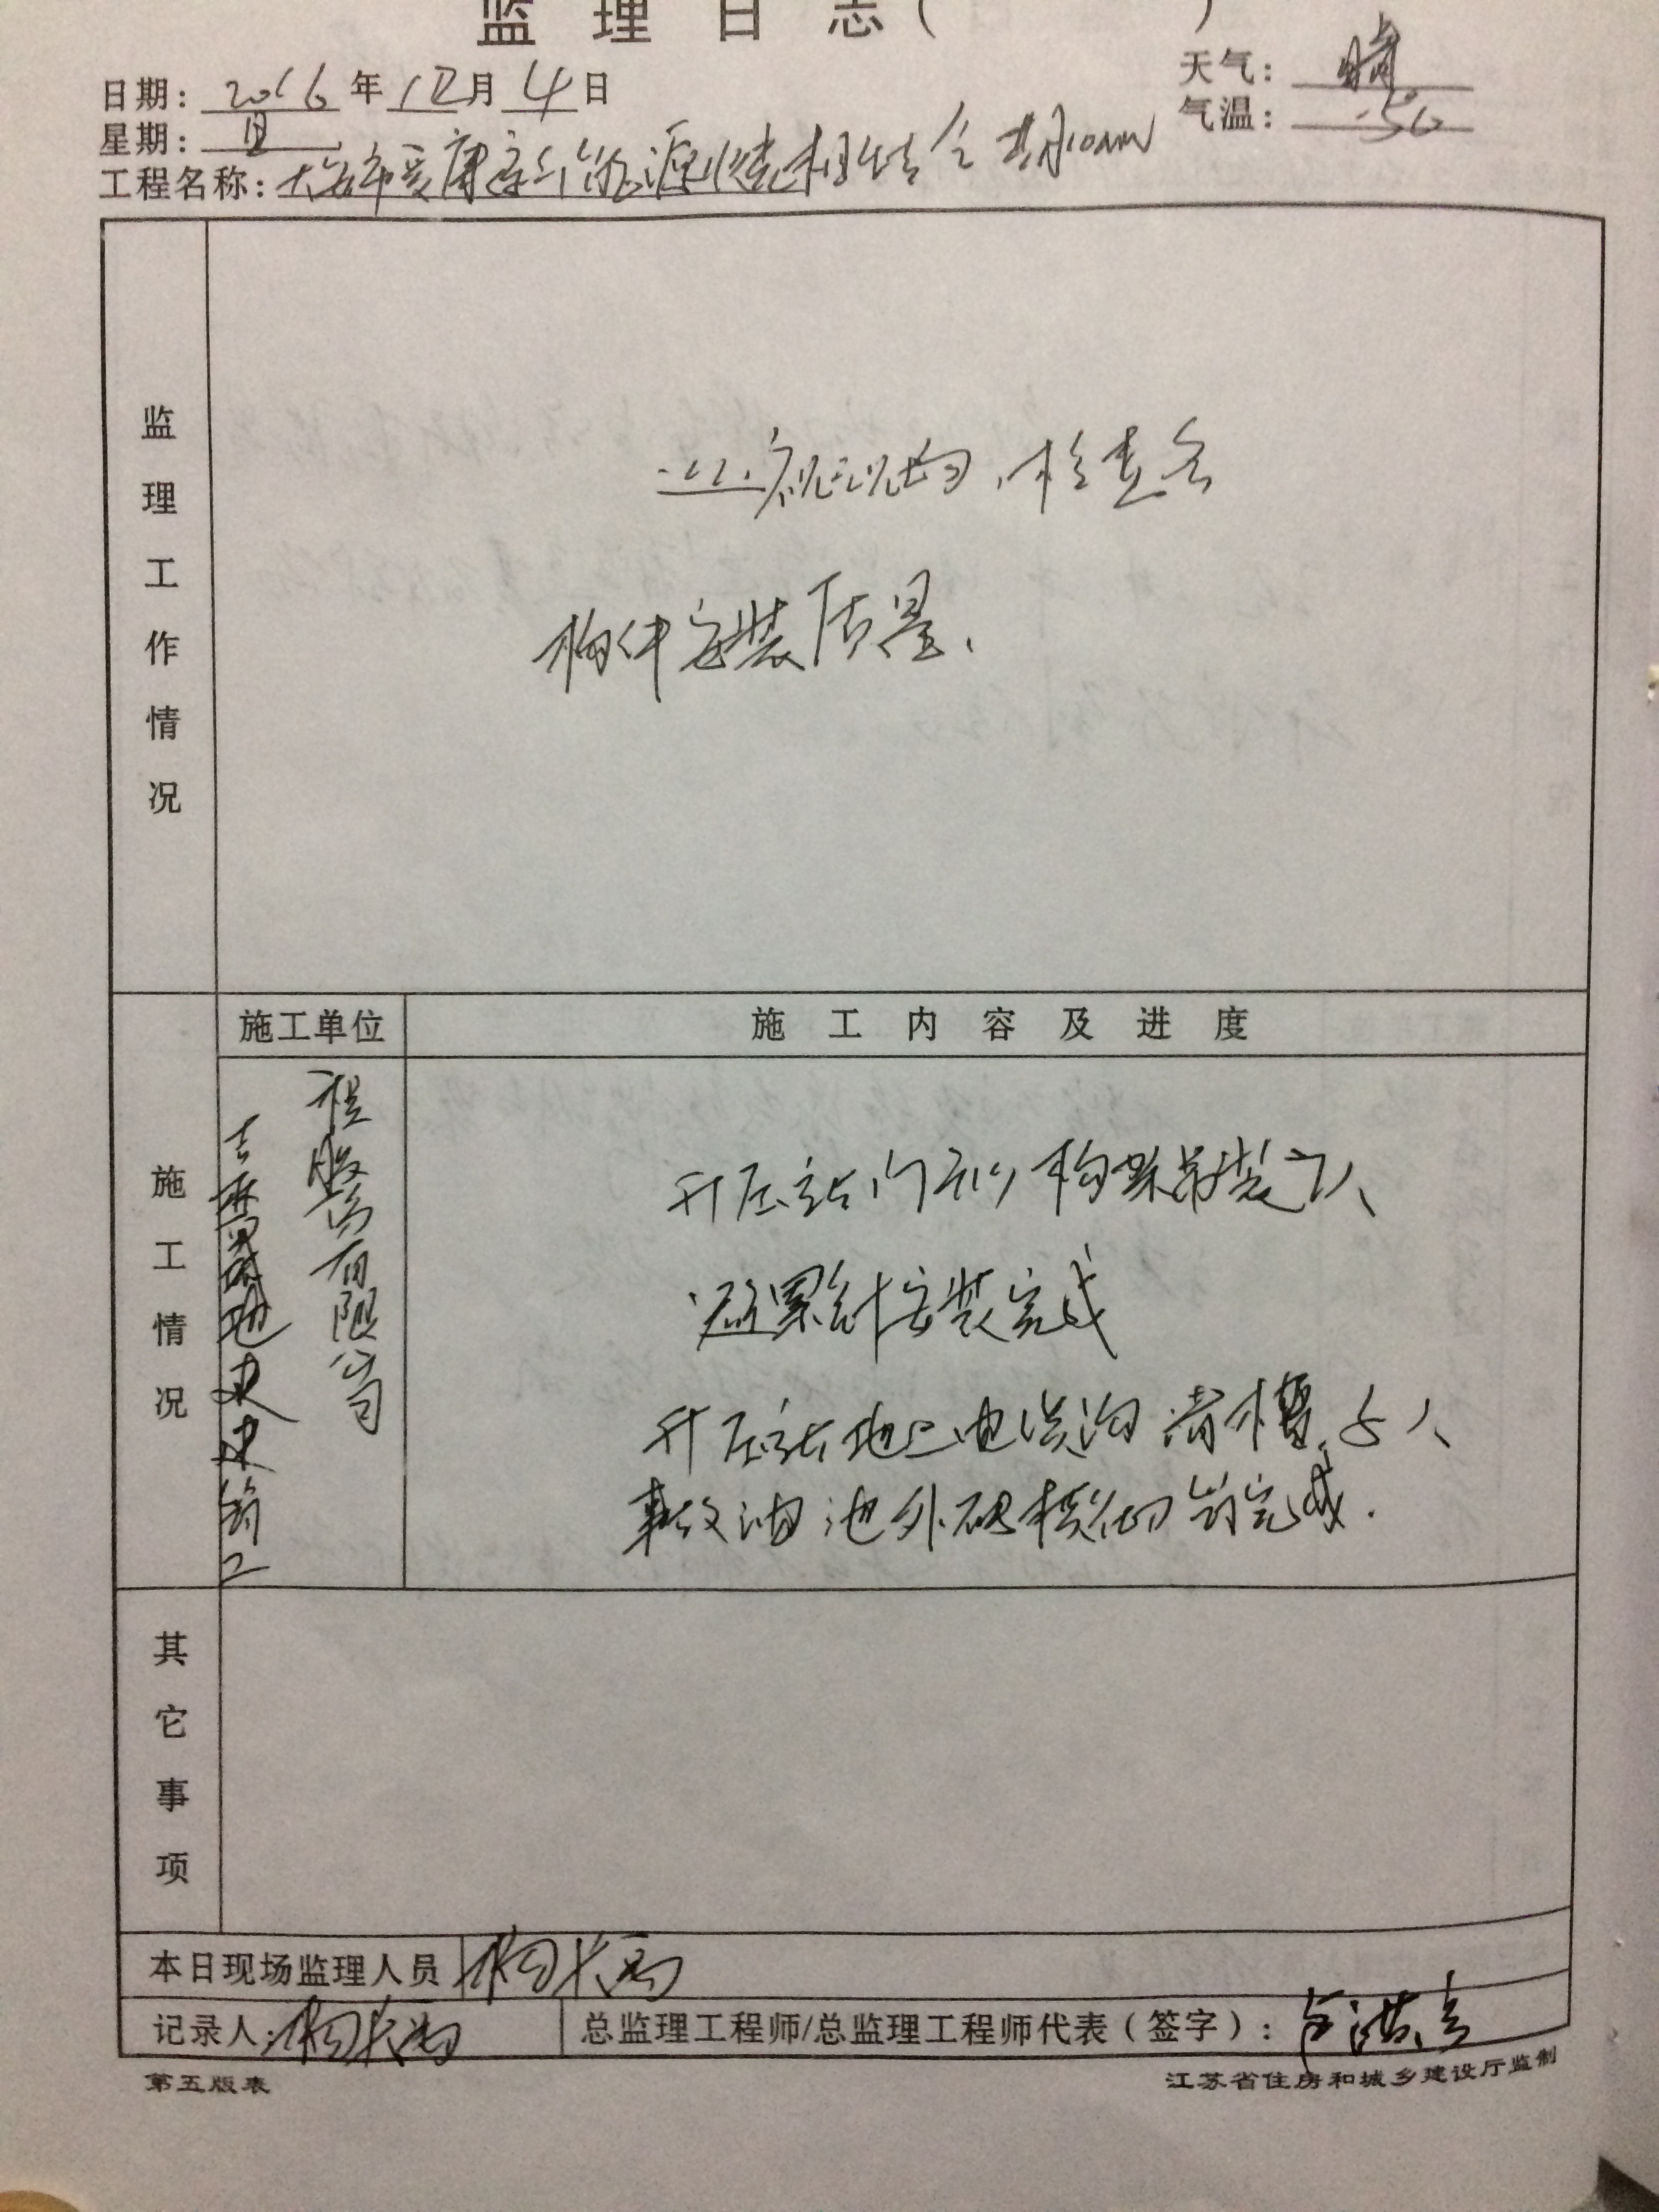 监理日志(
)
日期: 2016年12月4日
天气: 晴
星期: 日
气温: -5℃
工程名称: 大安市爱康新能源
监理工作情况
巡视现场,检查各
构件安装质量、
施工单位
施工内容及进度
施工情况
程股份有限公司
升压站门形构架吊装7人
避雷针安装完成
升压站地上电缆沟清槽5人
事故油池外砼模板 完成.
其它事项
本日现场监理人员
记录人:
总监理工程师/总监理工程师代表(签字):
第五版表
江苏省住房和城乡建设厅监制